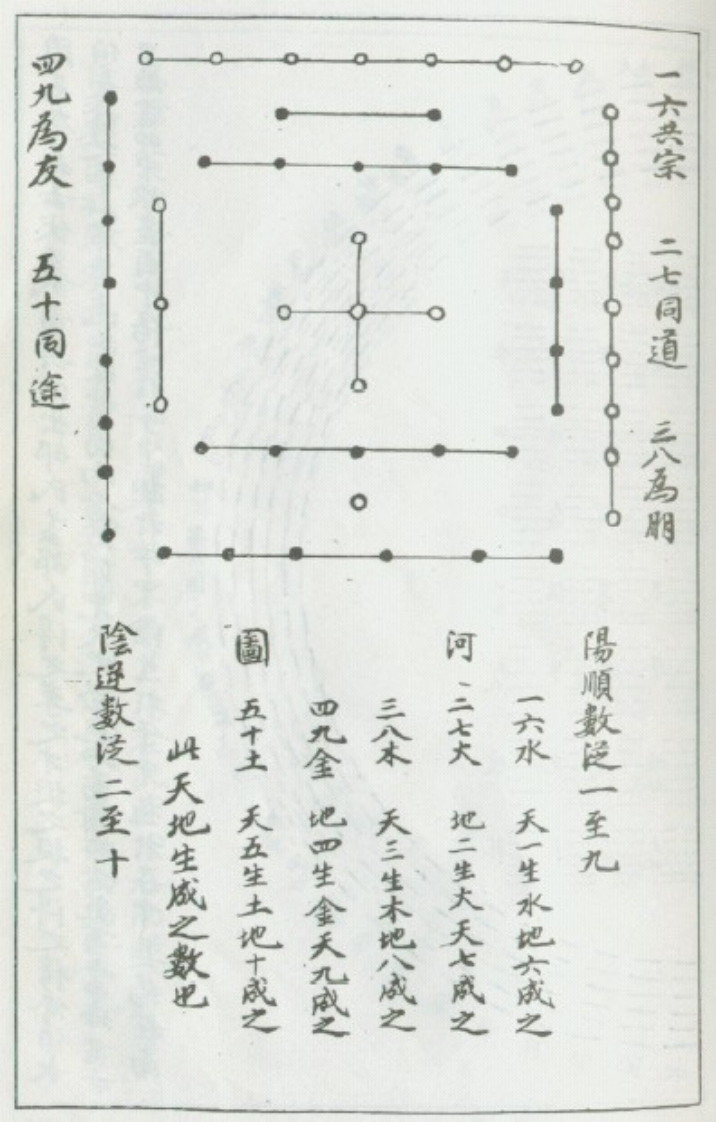 一六共宗　二七同道　三八為朋
四九為友　五十同途
陽順數從一至九
一六水　天一生水地六成之
河　二七火　地二生火天七成之
三八木　天三生木地八成之
四九金　地四生金天九成之
圖　五十土　天五生土地十成之
此天地生成之數也
陰逆數從二至十